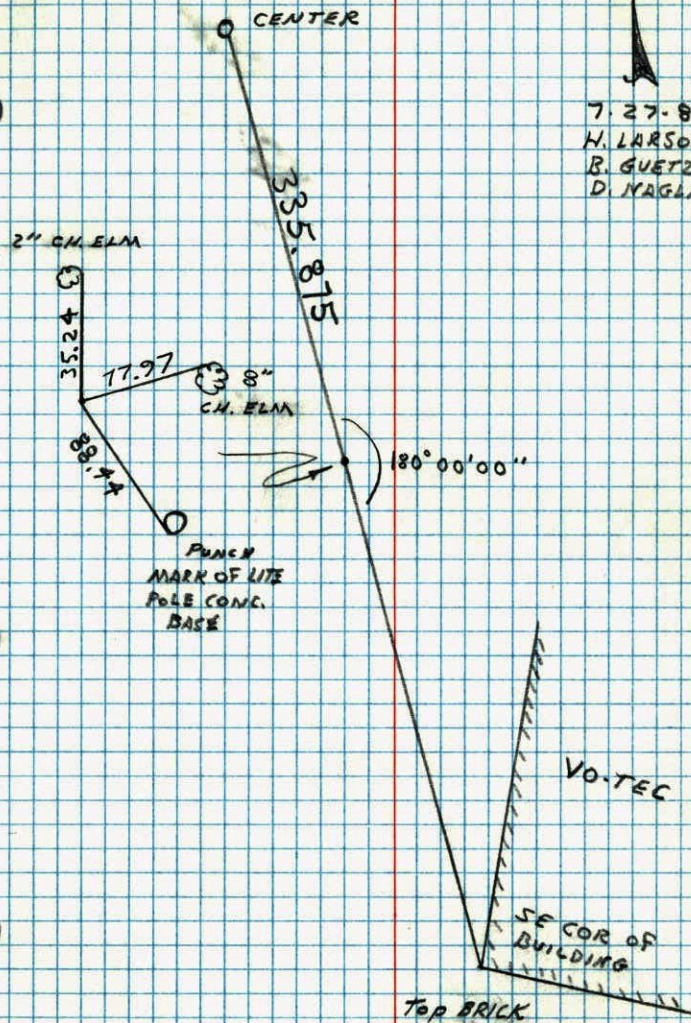 CENTER
7.27.8
H. LARSO
B. GUETZ
D. NAGL
335.875
2" CH. ELM
35.24
77.97
8"
CH. ELM
88.44
180°00'00"
PUNCH
MARK OF LITE
POLE CONC.
BASE
VO-TEC
SE COR OF
BUILDING
TOP BRICK